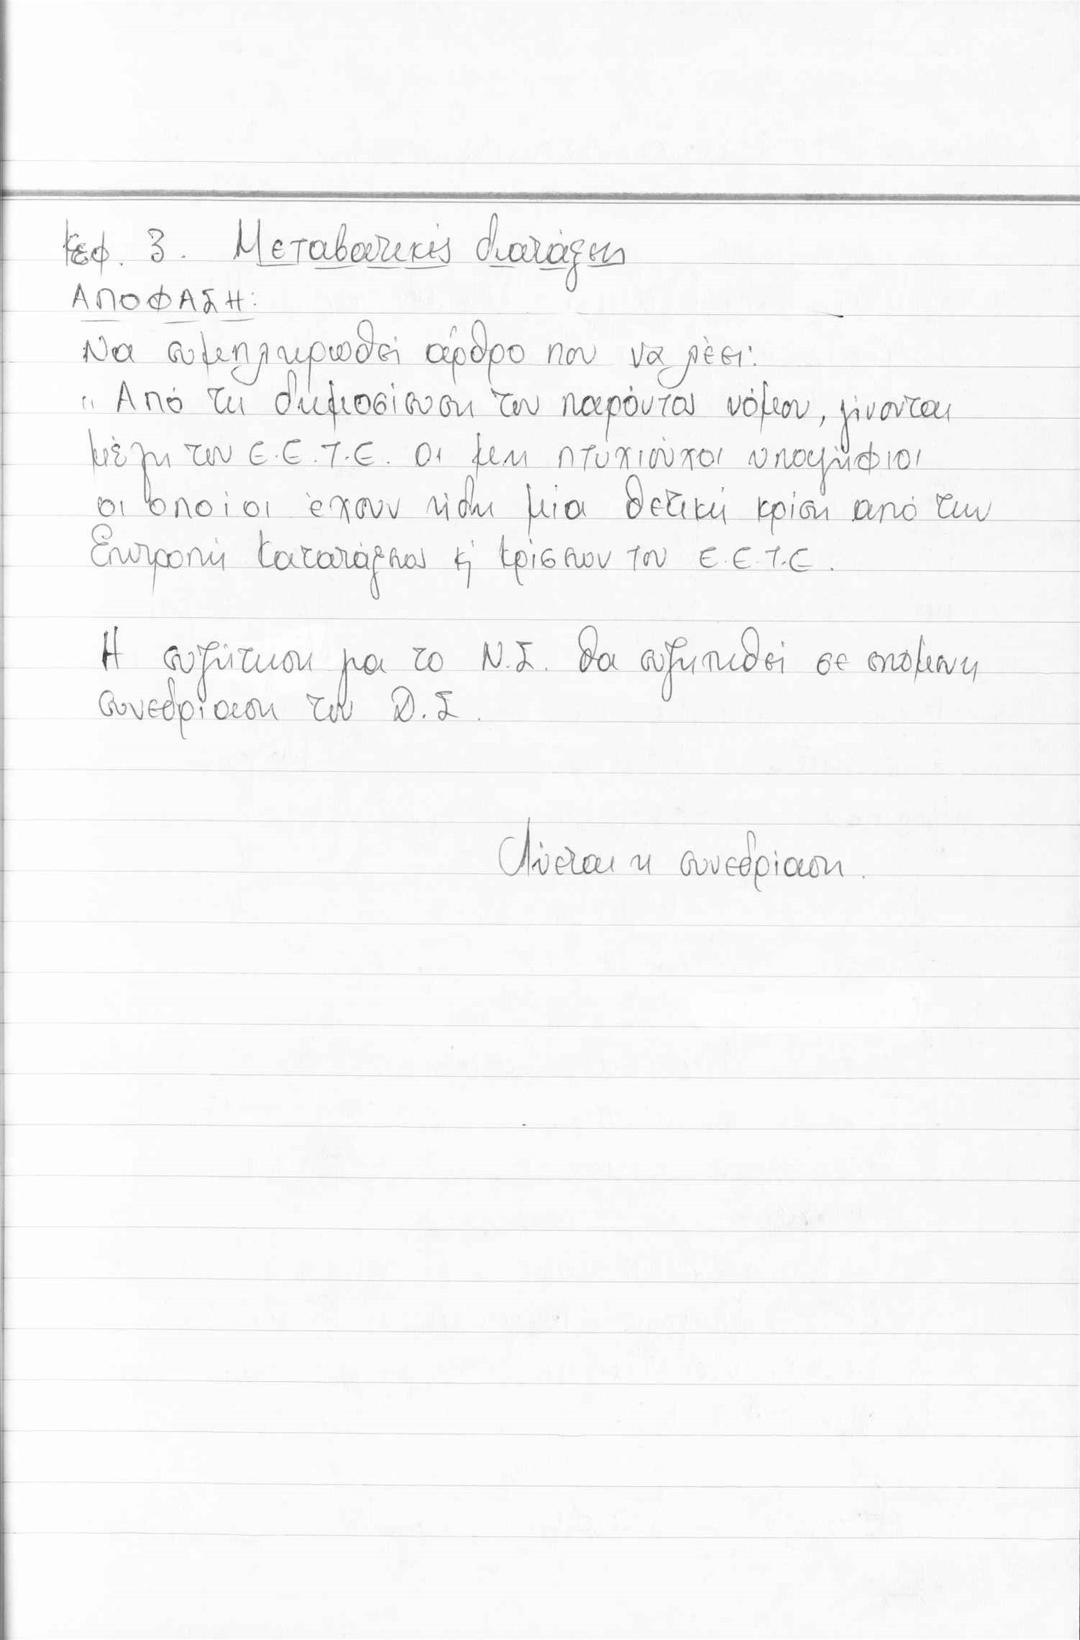 Κεφ. 3. Μεταβατικές διατάξεις
ΑΠΟΦΑΣΗ:
Να συμπληρωθεί άρθρο που να λέει:
"Από τη δημοσίευση του παρόντος νόμου, γίνονται
μέλη του Ε.Ε.Τ.Ε. οι μη πτυχιούχοι υποψήφιοι
οι οποίοι έχουν ήδη μία θετική κρίση από την
Επιτροπή Κατατάξεως κ' κρίσεων του Ε.Ε.Τ.Ε.
Η συζήτηση για το Ν.Σ. θα συζητηθεί σε επόμενη
συνεδρίαση του Δ.Σ.
Λύεται η συνεδρίαση.